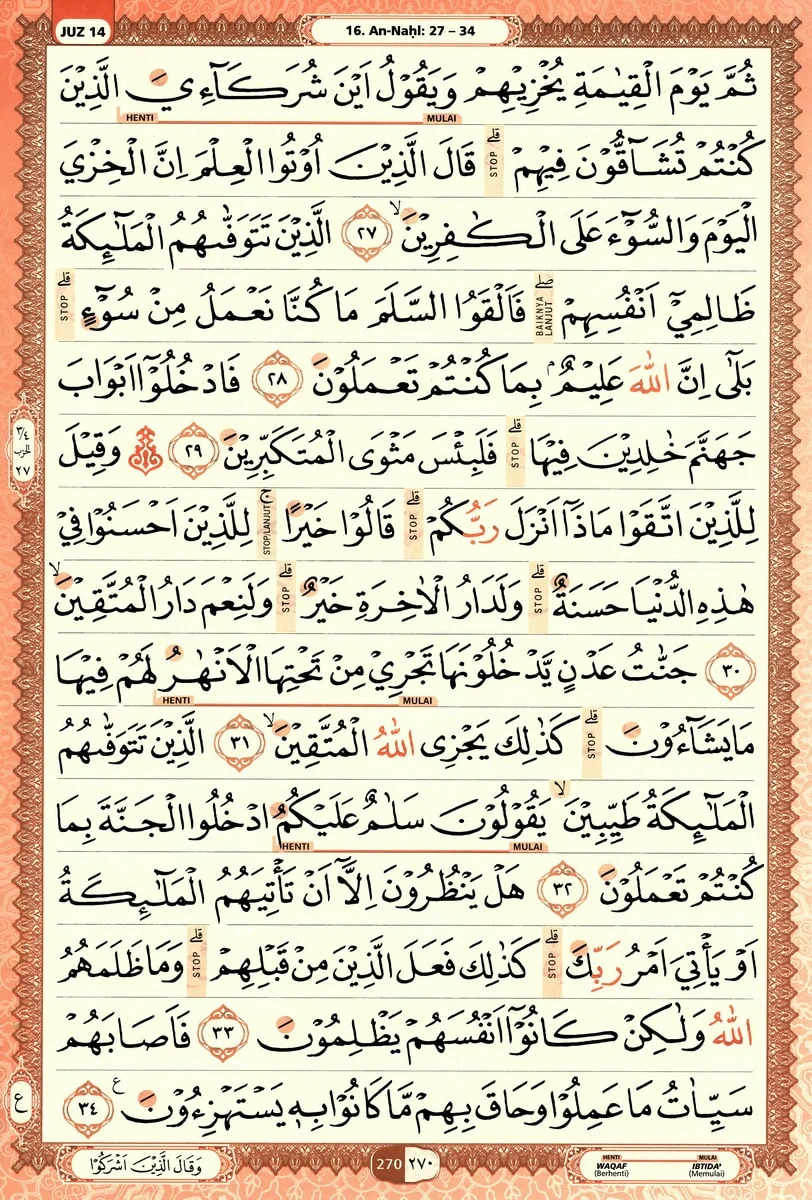 JUZ 14
16. An-Naḥl: 27 – 34
ثُمَّ يَوْمَ الْقِيٰمَةِ يُخْزِيْهِمْ وَيَقُوْلُ اَيْنَ شُرَكَاۤءِيَ الَّذِيْنَ
HENTI MULAI
كُنْتُمْ تُشَاۤقُّوْنَ فِيْهِمْ ۗ قَالَ الَّذِيْنَ اُوْتُوا الْعِلْمَ اِنَّ الْخِزْيَ
STOP
الْيَوْمَ وَالسُّوْۤءَ عَلَى الْكٰفِرِيْنَۙ ٢٧ الَّذِيْنَ تَتَوَفّٰىهُمُ الْمَلٰۤىِٕكَةُ
ظَالِمِيْٓ اَنْفُسِهِمْ ۖ فَاَلْقَوُا السَّلَمَ مَا كُنَّا نَعْمَلُ مِنْ سُوْۤءٍ ۗ
BAIKNYA LANJUT STOP
بَلٰٓى اِنَّ اللّٰهَ عَلِيْمٌۢ بِمَا كُنْتُمْ تَعْمَلُوْنَ ٢٨ فَادْخُلُوْٓا اَبْوَابَ
جَهَنَّمَ خٰلِدِيْنَ فِيْهَا ۗ فَلَبِئْسَ مَثْوَى الْمُتَكَبِّرِيْنَ ٢٩ ۞ وَقِيْلَ
STOP
٣/٤
الحزب
٢٧
لِلَّذِيْنَ اتَّقَوْا مَاذَآ اَنْزَلَ رَبُّكُمْ ۗ قَالُوْا خَيْرًا ۚ لِلَّذِيْنَ اَحْسَنُوْا فِيْ
STOP STOP/LANJUT
هٰذِهِ الدُّنْيَا حَسَنَةٌ ۗ وَلَدَارُ الْاٰخِرَةِ خَيْرٌ ۗ وَلَنِعْمَ دَارُ الْمُتَّقِيْنَۙ
STOP STOP
٣٠ جَنّٰتُ عَدْنٍ يَّدْخُلُوْنَهَا تَجْرِيْ مِنْ تَحْتِهَا الْاَنْهٰرُ لَهُمْ فِيْهَا
HENTI MULAI
مَا يَشَاۤءُوْنَ ۗ كَذٰلِكَ يَجْزِى اللّٰهُ الْمُتَّقِيْنَۙ ٣١ الَّذِيْنَ تَتَوَفّٰىهُمُ
STOP
الْمَلٰۤىِٕكَةُ طَيِّبِيْنَۙ يَقُوْلُوْنَ سَلٰمٌ عَلَيْكُمُ ادْخُلُوا الْجَنَّةَ بِمَا
HENTI MULAI
كُنْتُمْ تَعْمَلُوْنَ ٣٢ هَلْ يَنْظُرُوْنَ اِلَّآ اَنْ تَأْتِيَهُمُ الْمَلٰۤىِٕكَةُ
اَوْ يَأْتِيَ اَمْرُ رَبِّكَ ۗ كَذٰلِكَ فَعَلَ الَّذِيْنَ مِنْ قَبْلِهِمْ ۗ وَمَا ظَلَمَهُمُ
STOP STOP
اللّٰهُ وَلٰكِنْ كَانُوْٓا اَنْفُسَهُمْ يَظْلِمُوْنَ ٣٣ فَاَصَابَهُمْ
سَيِّاٰتُ مَا عَمِلُوْا وَحَاقَ بِهِمْ مَّا كَانُوْا بِهٖ يَسْتَهْزِءُوْنَ ࣖ ٣٤
ع
وَقَالَ الَّذِيْنَ اَشْرَكُوْا
270 ٢٧٠
HENTI WAQAF (Berhenti)
MULAI IBTIDA' (Memulai)